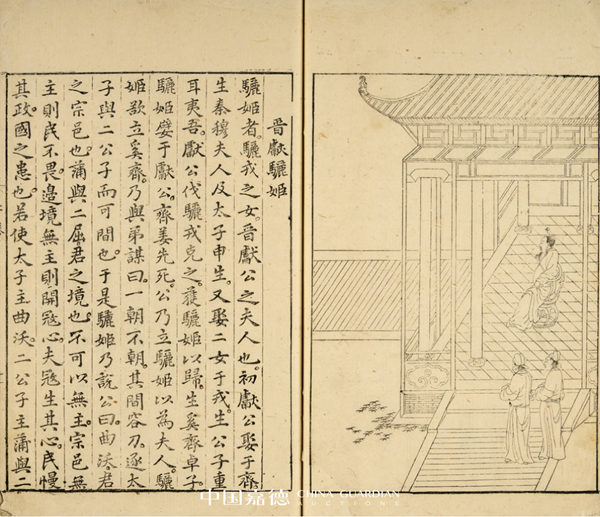 晉獻驪姬
驪姬者。驪戎之女。晉獻公之夫人也。初獻公娶于齊。
生秦穆夫人及太子申生。又娶二女于戎。生公子重
耳夷吾。獻公伐驪戎克之。獲驪姬以歸。生奚齊卓子
驪姬嬖于獻公。齊姜先死。公乃立驪姬以為夫人。驪
姬欲立奚齊。乃與弟謀曰。一朝不朝。其間容刀。逐太
子與二公子而可間也。于是驪姬乃說公曰。曲沃君
之宗邑也。蒲與二屈君之境也。不可以無主。宗邑無
主則民不畏。邊境無主則開寇心。夫寇生其心。民慢
其政。國之患也。若使太子主曲沃。二公子主蒲與二
中国嘉德 CHINA GUARDIAN
AUCTIONS